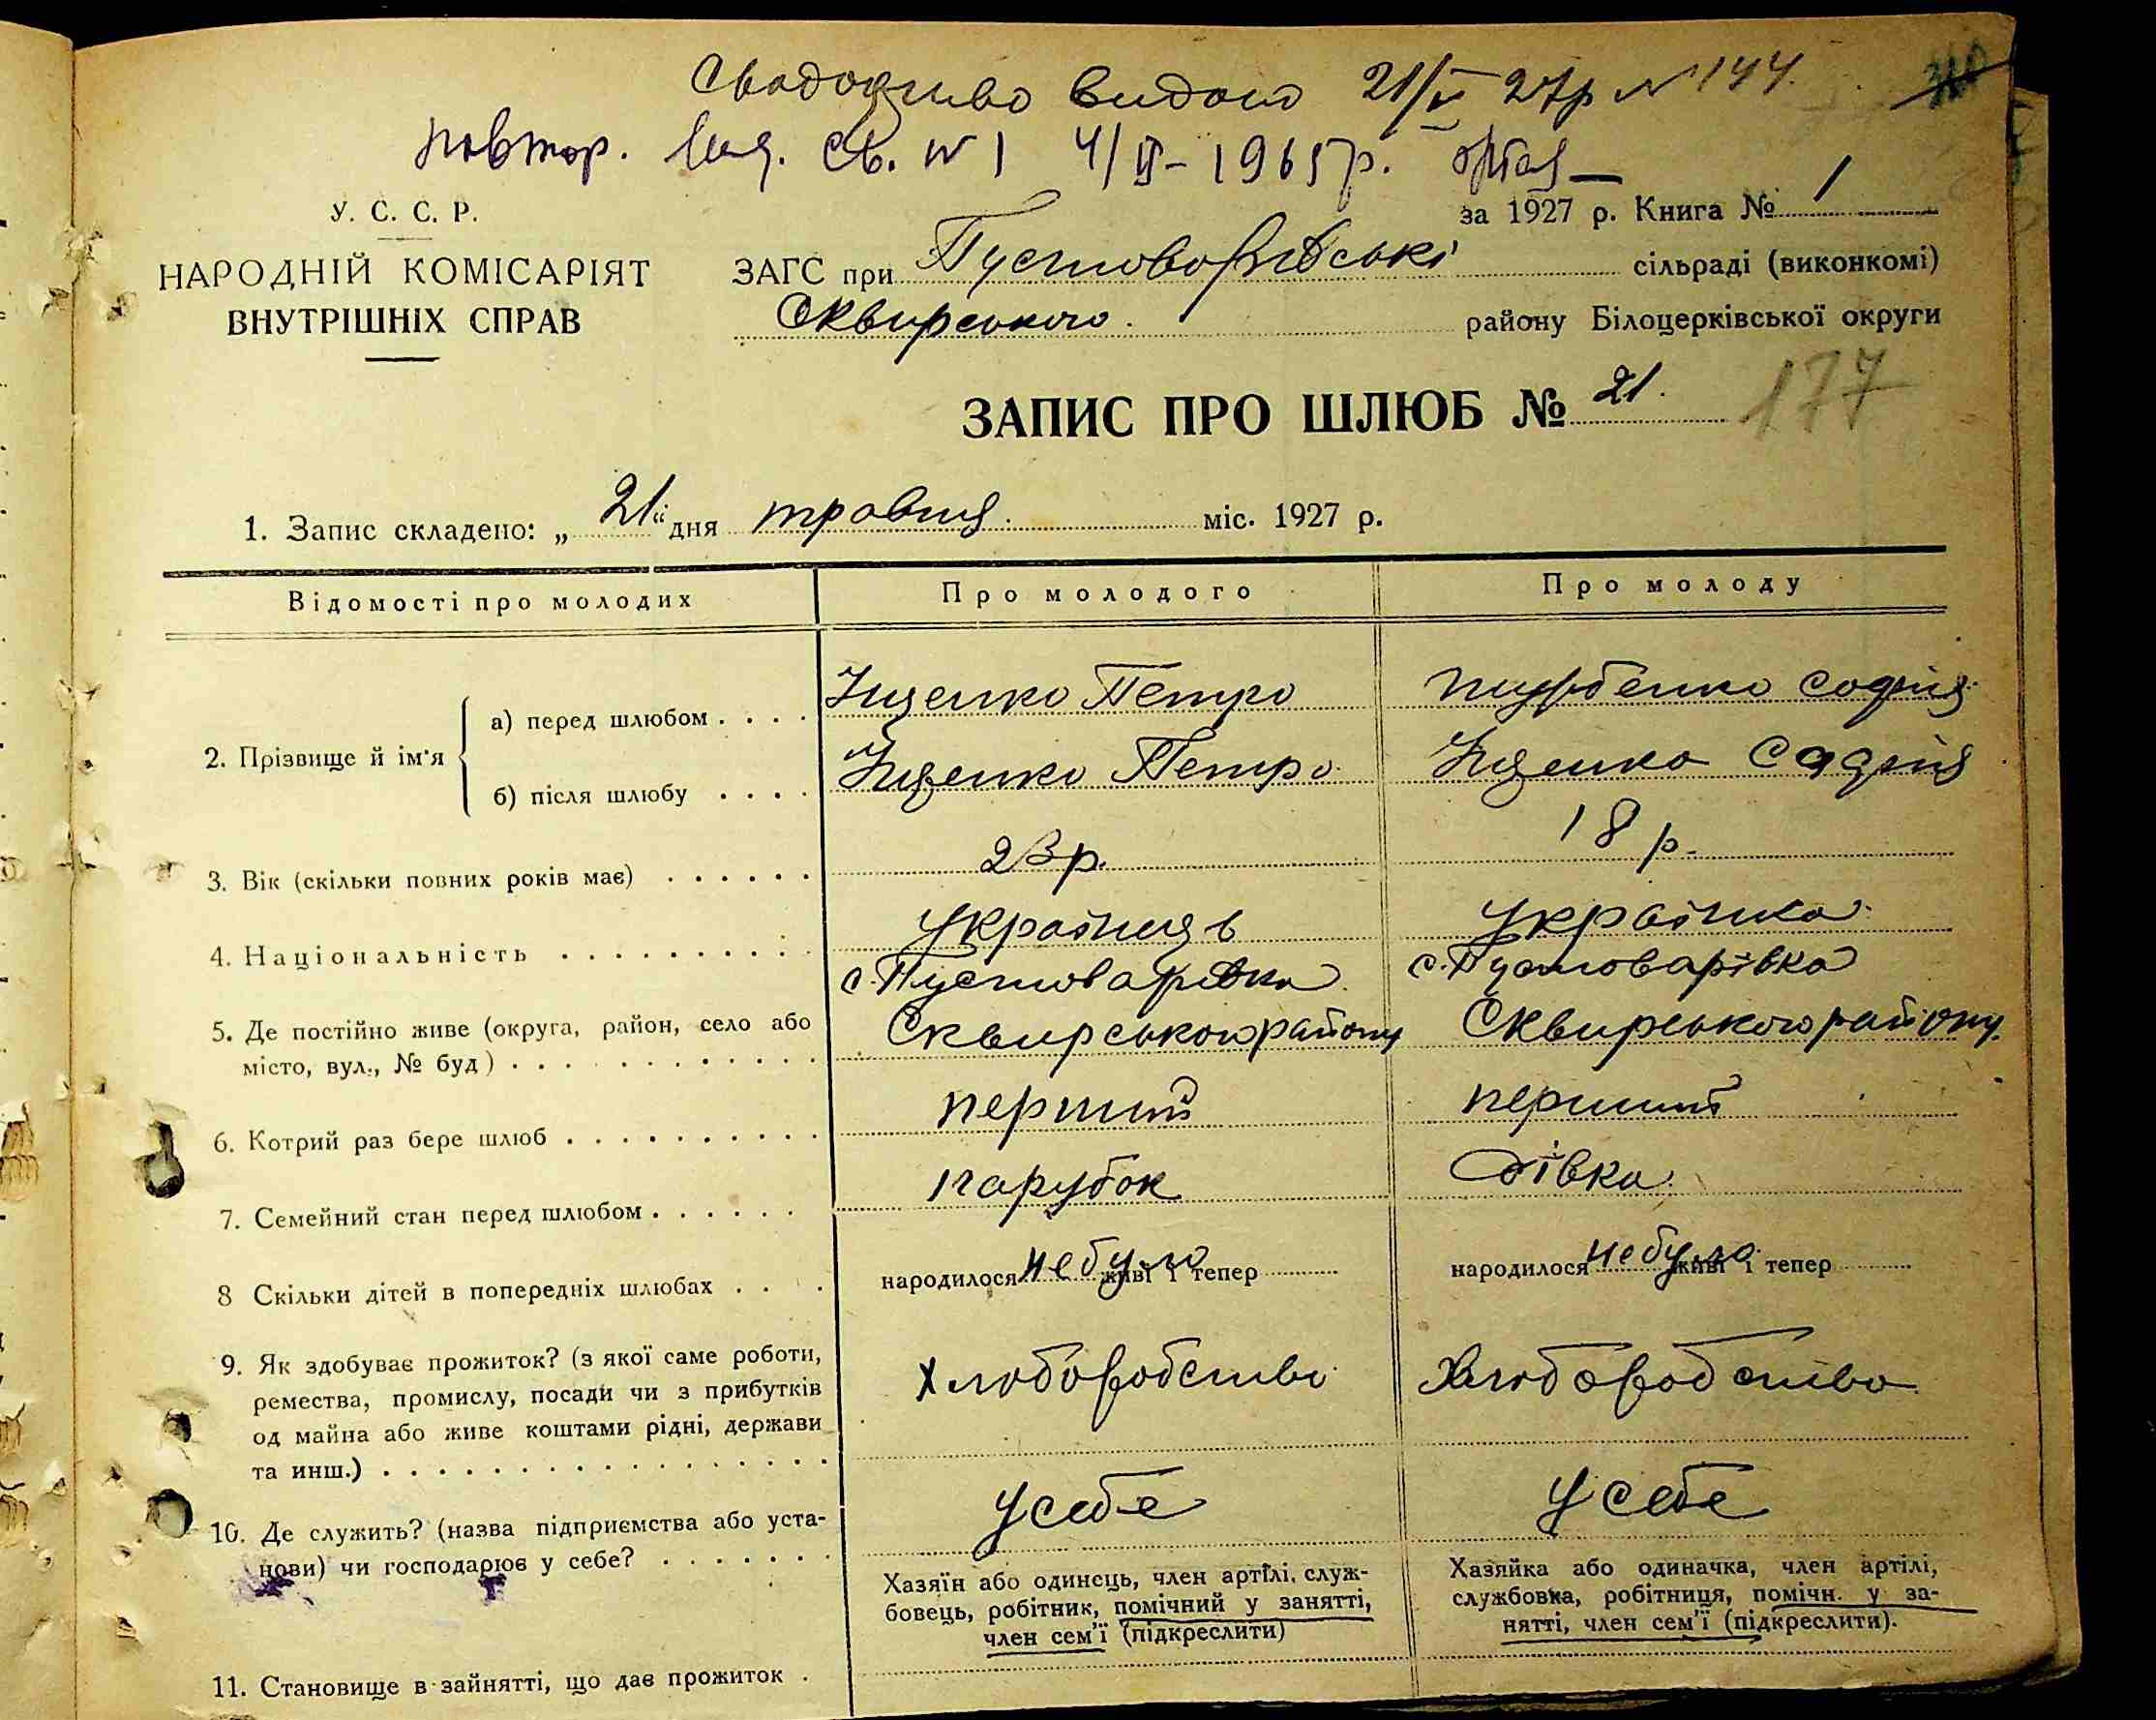 Свадоцтво видано 21/V 27р № 144.
повтор. вид. св. № 1 4/VI-1965р.
У. С. С. Р.
за 1927 р. Книга № 1
НАРОДНІЙ КОМІСАРІЯТ
ВНУТРІШНІХ СПРАВ
ЗАГС при Пустоварівські сільраді (виконкомі)
Сквирського. району Білоцерківської округи
ЗАПИС ПРО ШЛЮБ № 21.
177
1. Запис складено: „21“ дня травня. міс. 1927 р.
Відомості про молодих
Про молодого
Про молоду
2. Прізвище й ім'я
а) перед шлюбом . . . .
Іщенко Петро
Софія
б) після шлюбу . . . .
Іщенко Петро
Іщенко Софія
3. Вік (скільки повних років має) . . . . . .
23р.
18 р.
4. Національність . . . . . . . . . .
Українець
Українка
5. Де постійно живе (округа, район, село або
місто, вул., № буд) . . . . . . . . . . .
с. Пустоварівка
Сквирського району
с. Пустоварівка
Сквирського району.
6. Котрий раз бере шлюб . . . . . . . . . .
перший
перший
7. Семейний стан перед шлюбом . . . . . .
парубок
дівка
8 Скільки дітей в попередніх шлюбах . . .
народилося не було живі і тепер
народилося не було живі і тепер
9. Як здобуває прожиток? (з якої саме роботи,
ремества, промислу, посади чи з прибутків
од майна або живе коштами рідні, держави
та инш.) . . . . . . . . . . . . . . . .
Хлюборобство
Хлюборобство
10. Де служить? (назва підприємства або уста-
нови) чи господарює у себе? . . . . . . .
У себе
У себе
11. Становище в зайнятті, що дає прожиток .
Хазяїн або одинець, член артілі, служ-
бовець, робітник, помічний у занятті,
член сем'ї (підкреслити)
Хазяйка або одиначка, член артілі,
службовка, робітниця, помічн. у за-
нятті, член сем'ї (підкреслити).